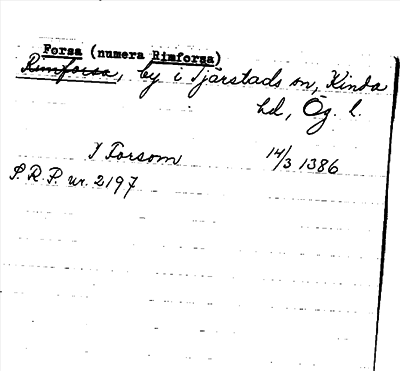 Forsa (numera Rimforsa)
Rimforsa, by i Tjärstads sn, Kinda
hd, Ög. l.
I Forsom 14/3 1386
S.R.P. nr. 2197